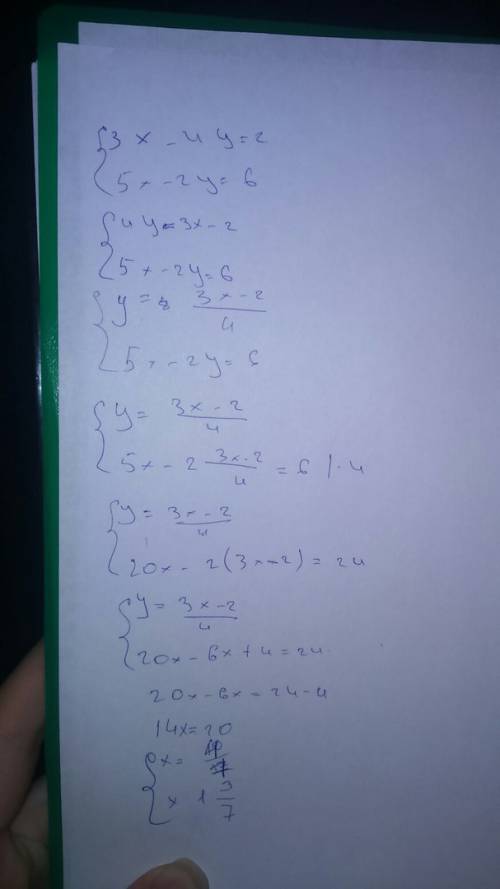 3x - 4y = 2
5x - 2y = 6
4y = 3x - 2
5x - 2y = 6
y = 3x - 2 / 4
5x - 2y = 6
y = 3x - 2 / 4
5x - 2 3x - 2 / 4 = 6 | · 4
y = 3x - 2 / 4
20x - 2(3x - 2) = 24
y = 3x - 2 / 4
20x - 6x + 4 = 24
20x - 6x = 24 - 4
14x = 20
x =
x 1 3/7